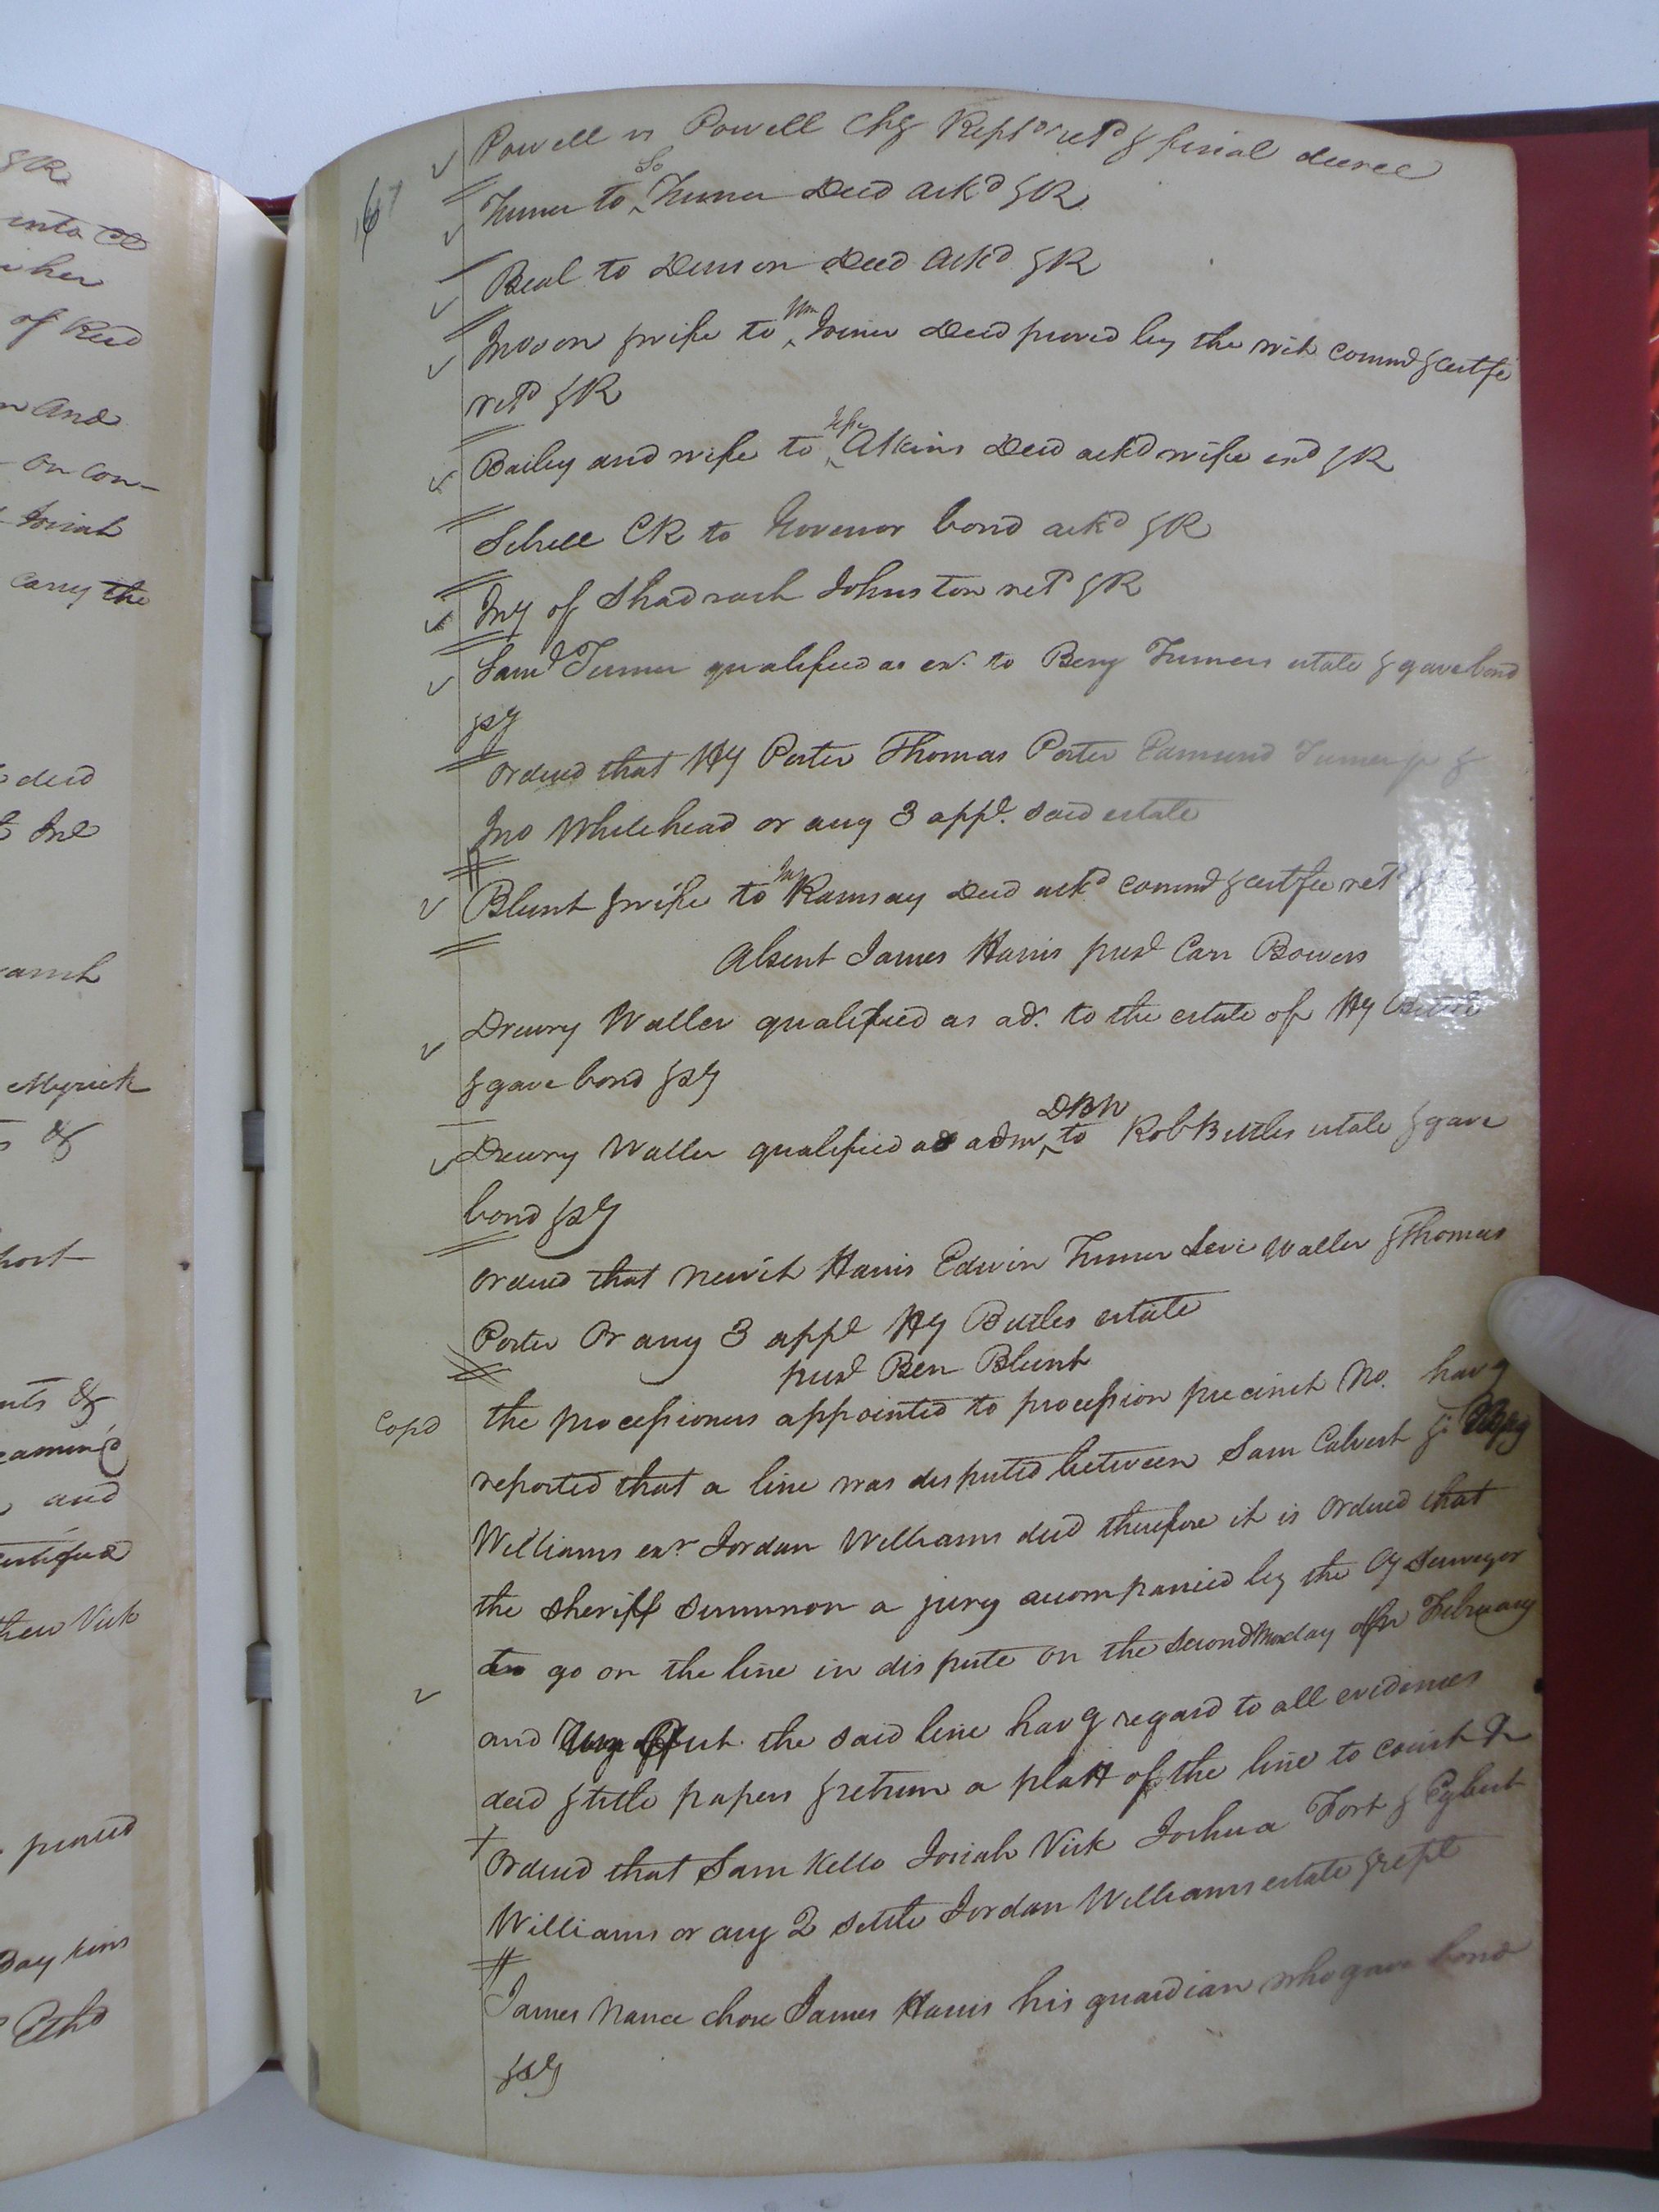 Powell vs Powell Chy Rept ret'd & final decree
167
Turner to So Turner Deed ack'd & R
Beal to Denson Deed ack'd & R
Moore & wife to Wm Joiner Deed proved by the wit comm'd & certfe
ret'd & R
Bailey and wife to Jesse Atkins Deed ack'd wife exd & R
Sebrell CK to Govenor bond ack'd & R
Iny of Shadrach Johnston ret'd & R
Saml Turner qualified as exr. to Benj Turners estate & gave bond
& sy
Ordered that Hy Porter Thomas Porter Edmund Turner jr &
Jno Whitehead or any 3 appl. said estate
Blunt & wife to Ramsay Deed ack'd comm'd & certfee ret'd
Absent James Harris prest Carr Bowers
Drewry Waller qualified as ad. to the estate of Hy Bittle
& gave bond & sy
Drewry Waller qualified as admr DBN to Rob Bittles estate & gave
bond & sy
Ordered that Newit Harris Edwin Turner Levi Waller & Thomas
Porter Or any 3 appl Hy Bittles estate
prest Ben Blunt
Copd
the processioners appointed to procession precinct No. havg
reported that a line was disputed between Sam Calvert &
Williams exr Jordan Williams decd therefore it is Ordered that
the Sheriff Summon a jury accompanied by the Cy Surveyor
to go on the line in dispute on the second Monday in February
and the said line havg regard to all evidences
deed & title papers & return a platt of the line to court
Ordered that Sam Kello Josiah Vick Joshua Fort & Egbert
Williams or any 2 settle Jordan Williams estate & rept
James Nance chose James Harris his guardian who gave bond
& sy
into
her
of Reed
And
on con-
Josiah
carry the
deed
Myrick
&
and
Vick
proved